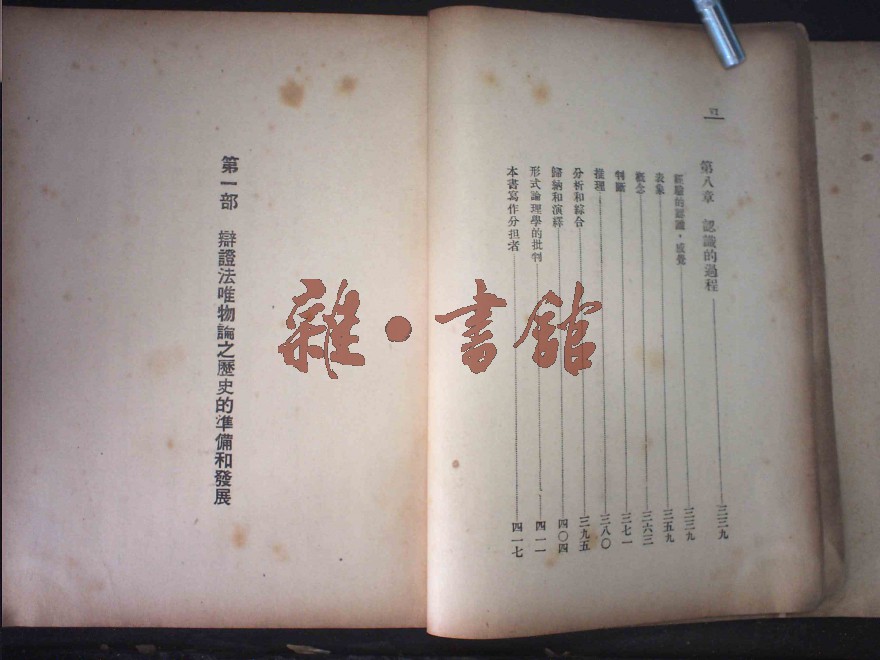 第八章　認識的過程 三三九
經驗的認識・感覺 三三九
表象 三五九
概念 三六三
判斷 三七一
推理 三八〇
分析和綜合 三九五
歸納和演繹 四〇四
形式論理學的批判 四一一
本書寫作分担者 四一七
第一部　辯證法唯物論之歷史的準備和發展
雜・書館